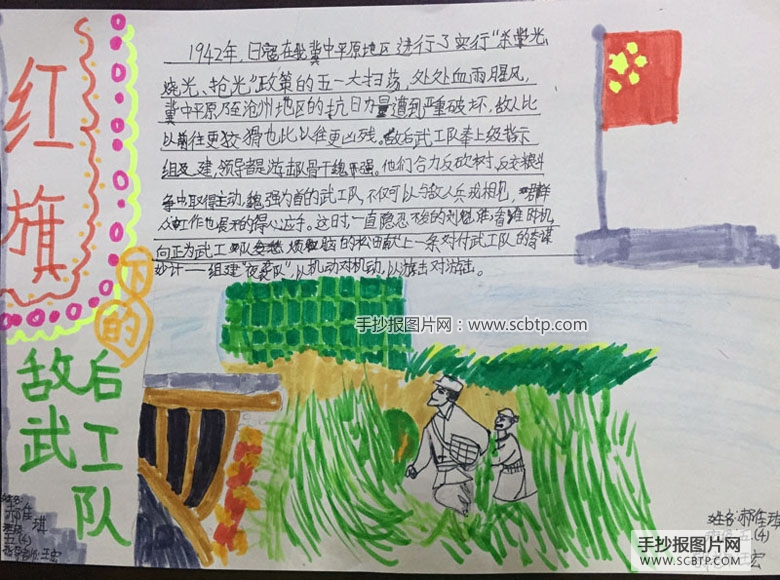 红旗
下的
敌后
武工队
1942年，日寇在我冀中平原地区进行了实行"杀光、
烧光、抢光"政策的五一大扫荡，处处血雨腥风，
冀中平原乃至沧州地区的抗日力量遭到严重破坏，敌人比
以前往更狡猾也比以往更凶残。敌后武工队奉上级指示
组建，领导者是游击队骨干魏强。他们合力反砍树、反交粮斗
争中取得主动，魏强为首的武工队，不仅可以与敌人兵戎相见，群
众工作也展开的得心应手。这时，一直隐忍不发的刘魁胜看准时机，
向正为武工队烦恼的松田献上一条对付武工队的奇谋
妙计——组建"夜袭队"，以机动对机动，以游击对游击。
手抄报图片网：www.scbtp.com
姓名：郝佳琪
班级
五(4)
指导老师:王宏
姓名:郝佳琪
五(4)
王宏
手抄报图片网
WWW.SCBTP.COM